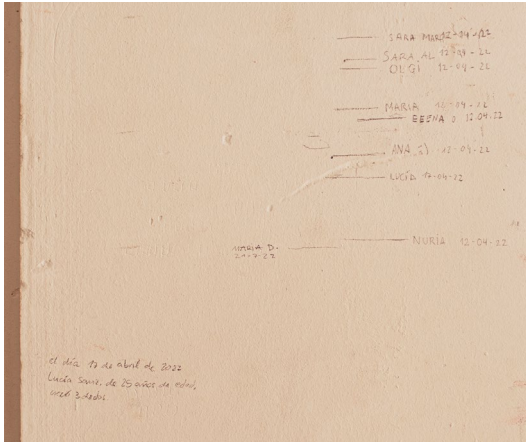 SARA MARTZ 12-04-22
SARA AL 12-04-22
OLGI 12-04-22
MARIA 12-04-22
ELENA 12.04.22
ANA :) 12-04-22
LUCÍA 12-04-22
NURIA 12-04-22
MARIA D.
el día 12 de abril de 2022
Lucía Sanz, de 25 años de edad,
3 dedos